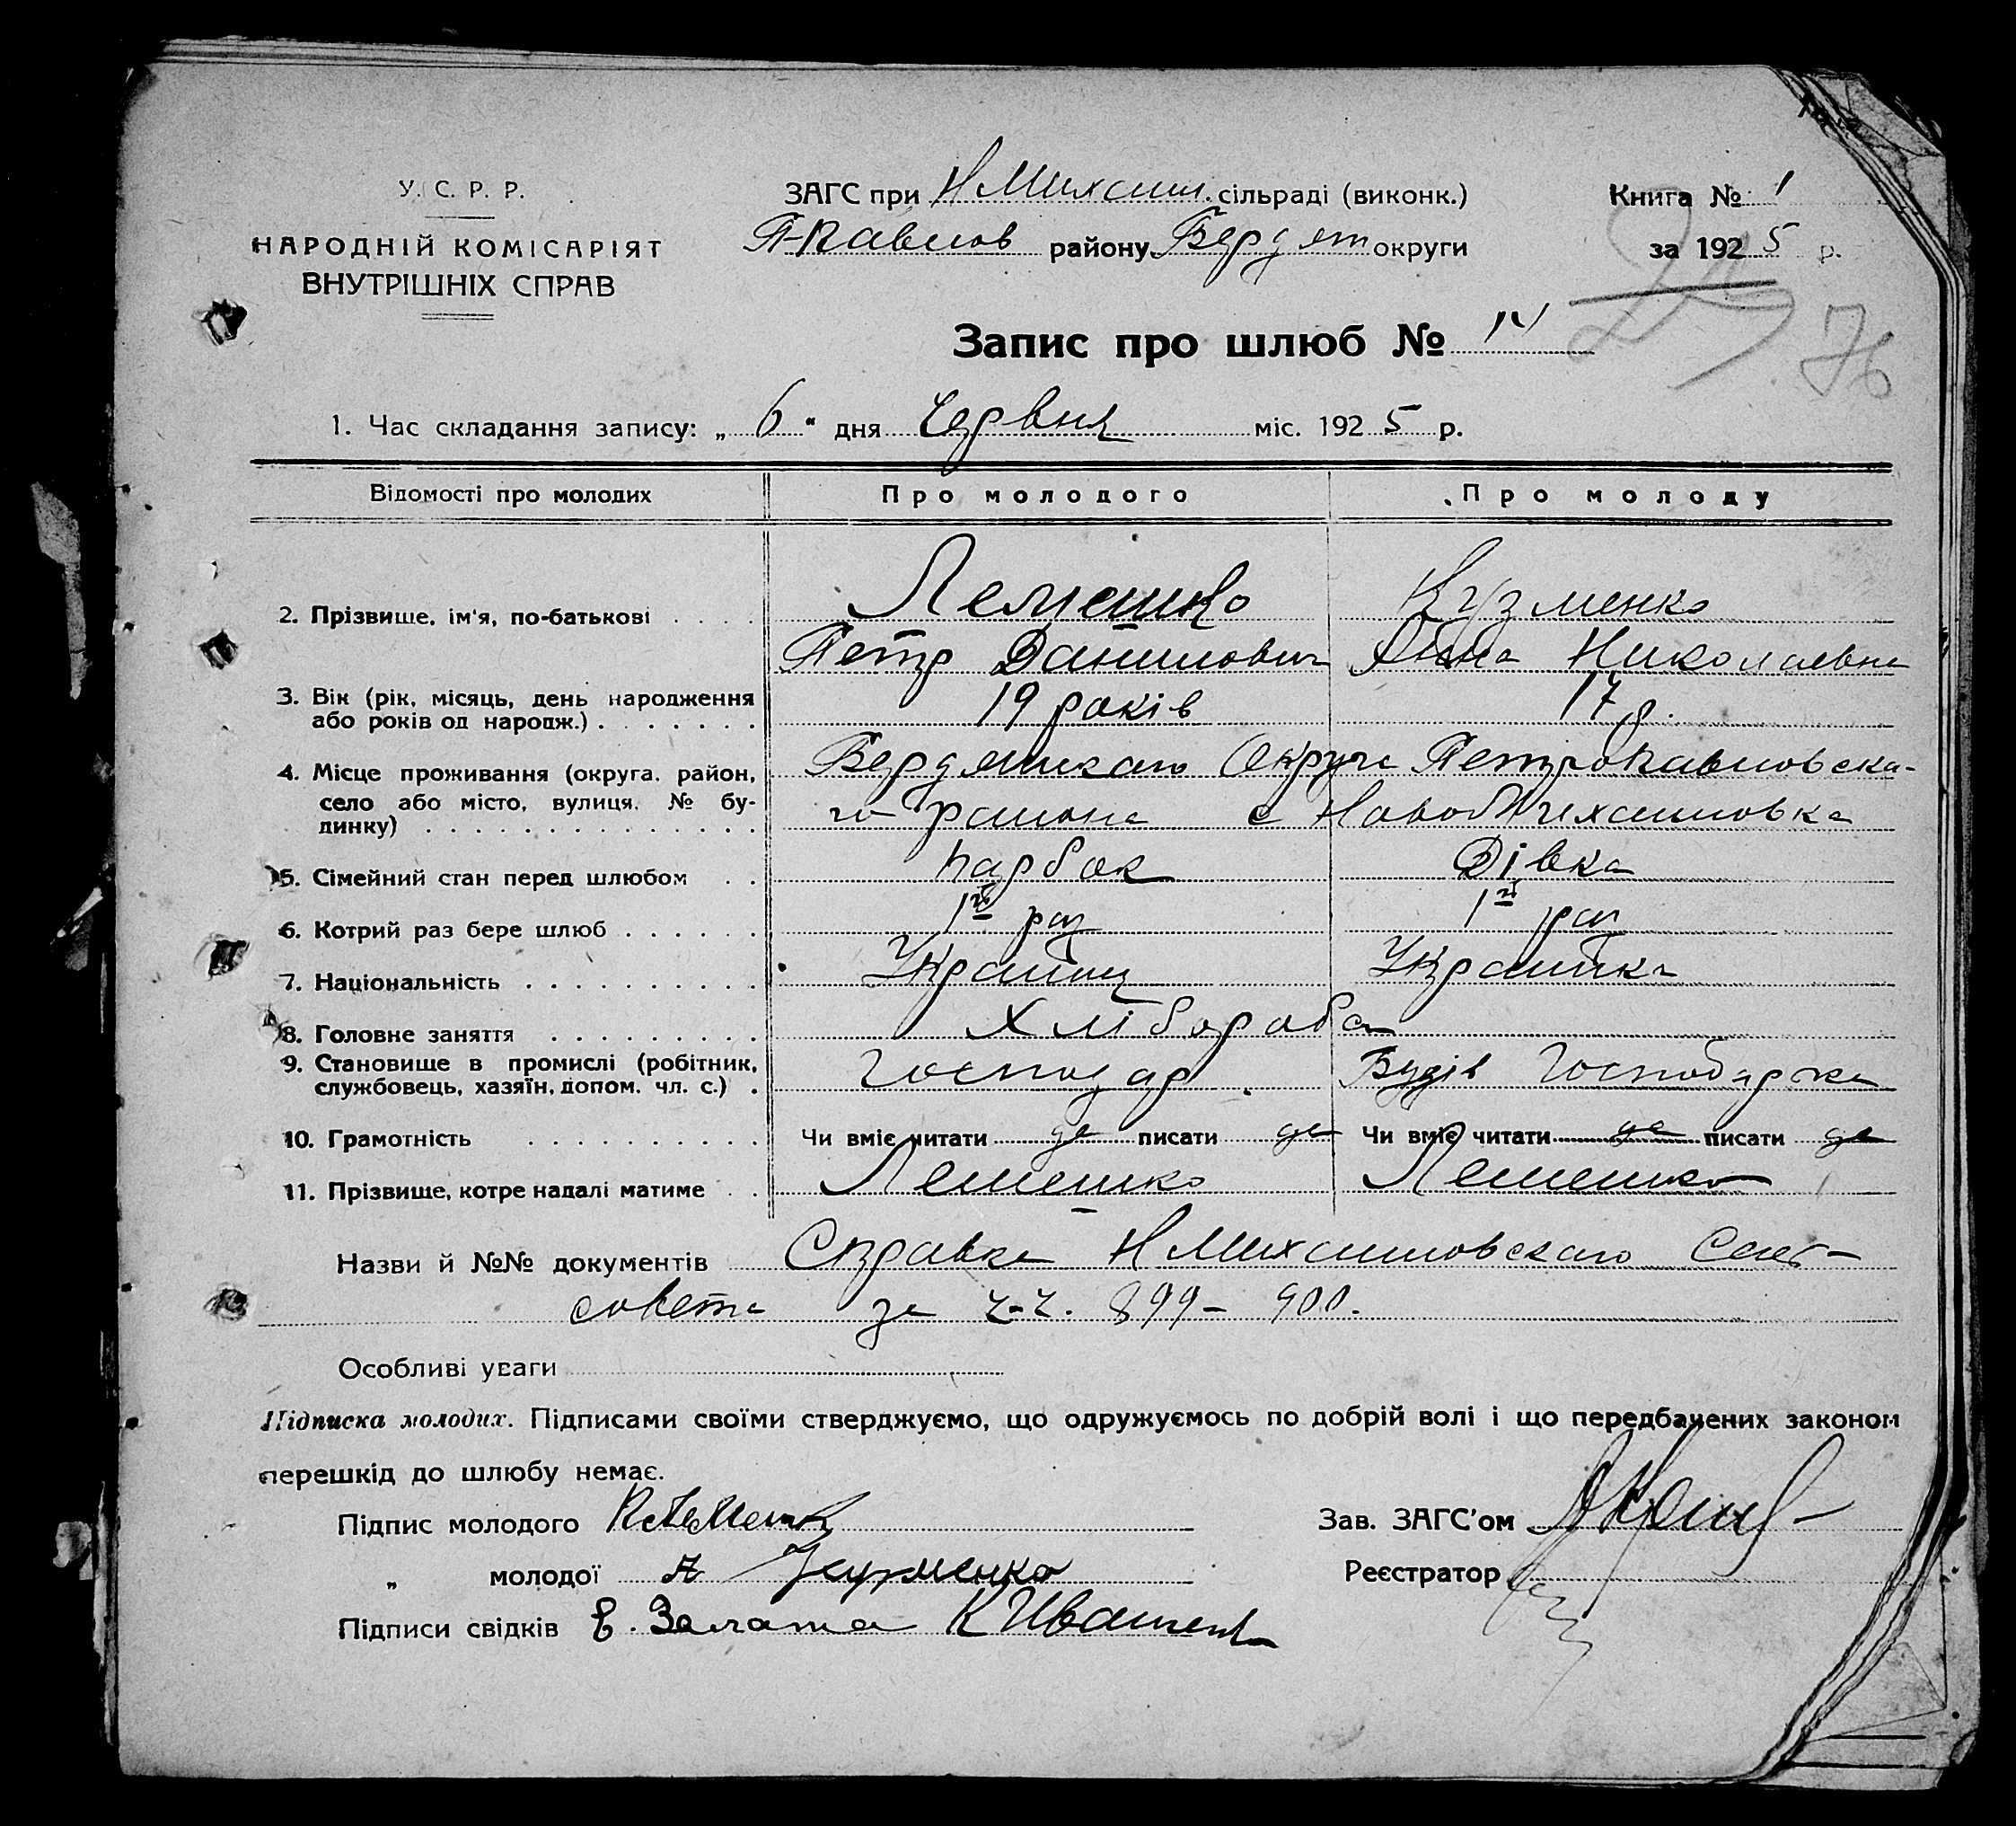 У. С. Р. Р.
НАРОДНІЙ КОМІСАРІЯТ
ВНУТРІШНІХ СПРАВ
ЗАГС при НМихаил. сільраді (виконк.)
П-Павлов району Бердян округи
Книга № 1
за 1925 р.
76
Запис про шлюб № 14
1. Час складання запису: „ 6 " дня Червня міс. 1925 р.
Відомості про молодих Про молодого Про молоду
2. Прізвище, ім'я, по-батькові . . . . Лемешко Кузменко
Петр Данилович Анна Николаевна
3. Вік (рік, місяць, день народження
або років од народж.) . . . . . . . 19 років 17 р.
4. Місце проживання (округа, район, Бердянскаго Округа Петропавловска-
село або місто, вулиця, № бу-
динку) . . . . . . . . . . . . . . го раиона с НовоМихаиловка
5. Сімейний стан перед шлюбом . . парбок Дівка
6. Котрий раз бере шлюб . . . . . . 1й раз 1й раз
7. Національність . . . . . . . . . . Украінц Украінка
8. Головне заняття . . . . . . . . . Хлібороба
9. Становище в промислі (робітник,
службовець, хазяїн, допом. чл. с.) . Господар Господарка
10. Грамотність . . . . . . . . . . Чи вміє читати да писати да Чи вміє читати да писати да
11. Прізвище, котре надалі матиме . . Лемешко Лемешко
Назви й №№ документів Справка НМихаиловскаго Сель-
совета за ч-ч. 899 – 900.
Особливі уваги
Підписка молодих. Підписами своїми стверджуємо, що одружуємось по добрій волі і що передбачених законом
перешкід до шлюбу немає.
Підпис молодого П Лемешк Зав. ЗАГС'ом
„ молодої А Кузменко Реєстратор
Підписи свідків К Иващенк